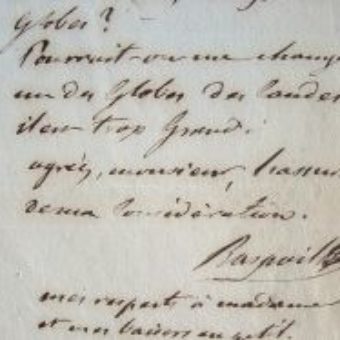 Globes?
Pourrait-on me change
un des Globes des
il est trop Grand.
agréez, monsieur, l'assur
de ma Considération.
Raspail
mes respects à madame
et mes baisers au petit.